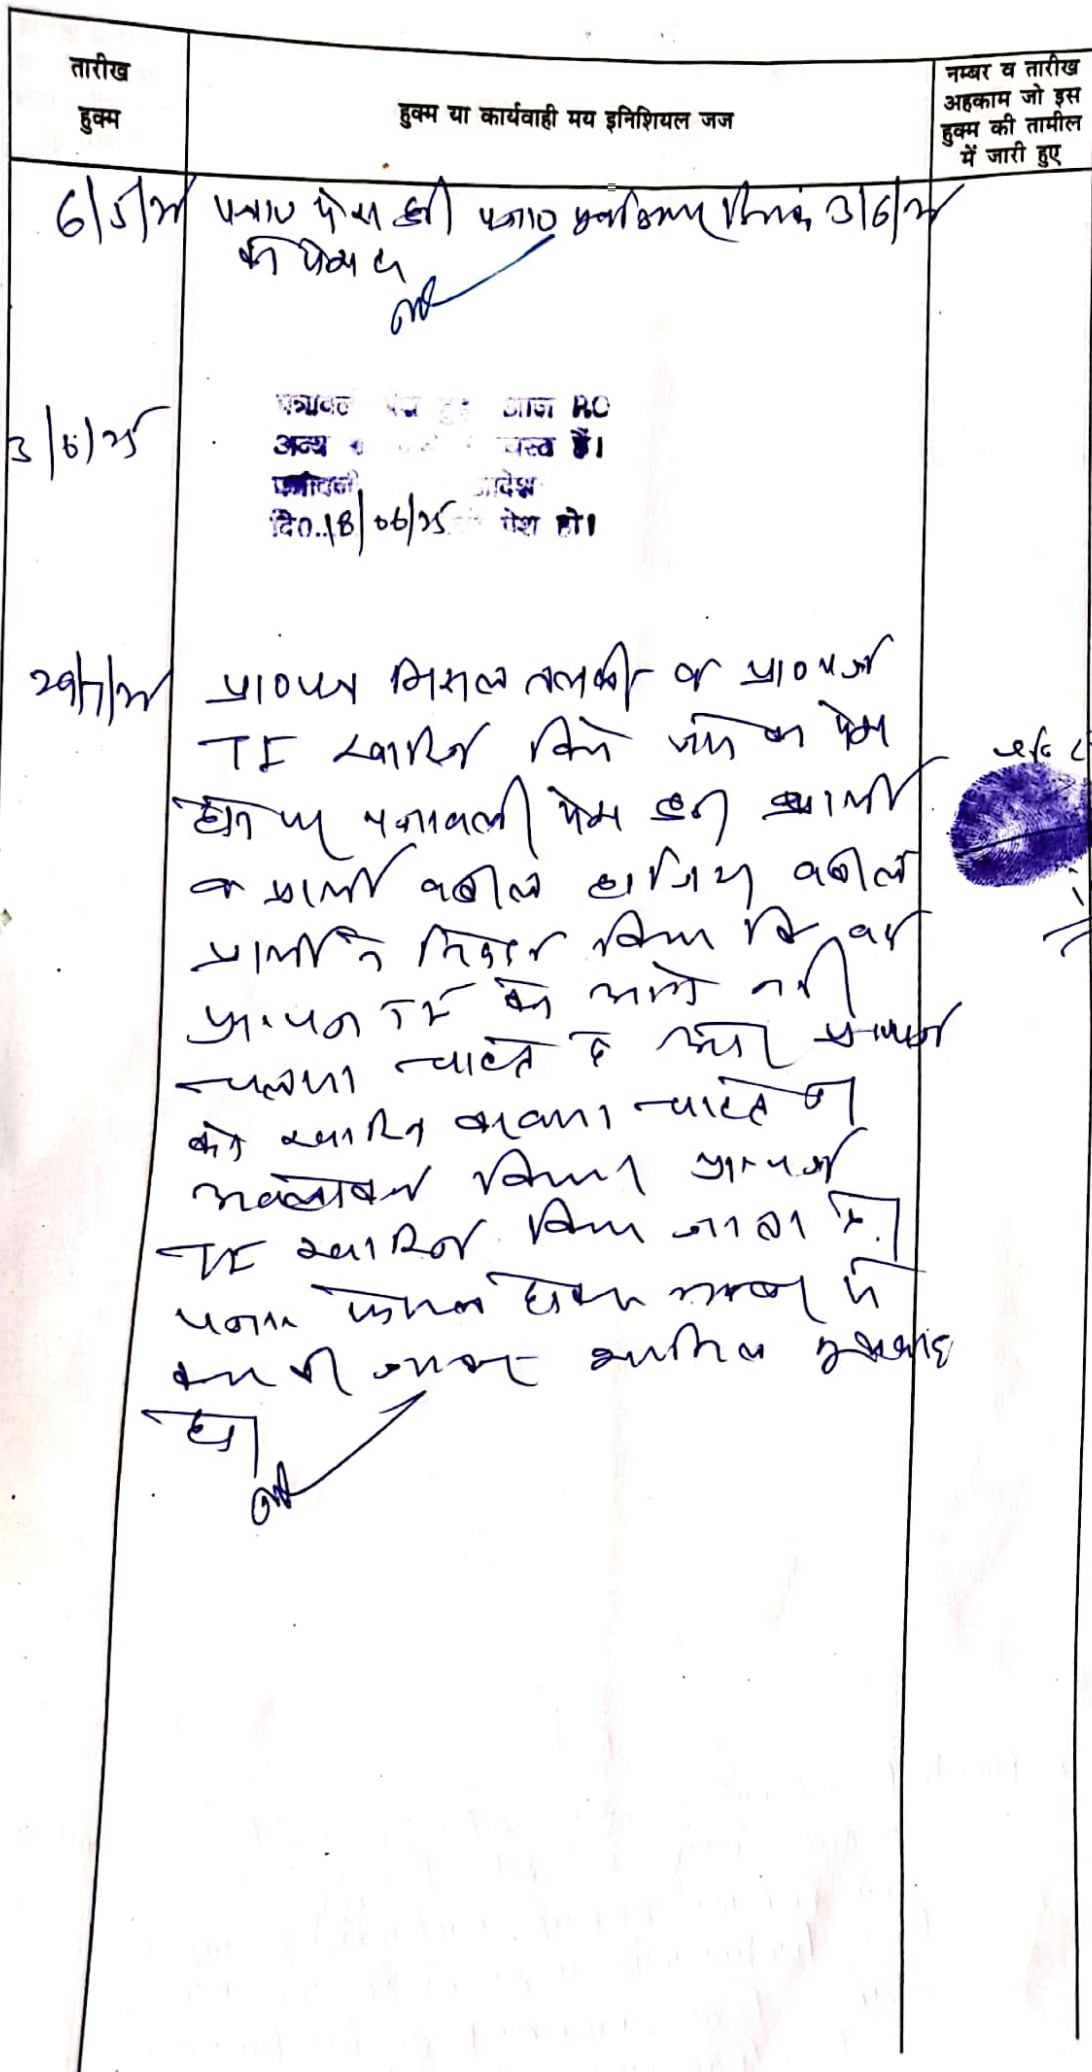 तारीख
हुक्म
हुक्म या कार्यवाही मय इनिशियल जज
नम्बर व तारीख
अहकाम जो इस
हुक्म की तामील
में जारी हुए
6/5/25 पत्रा० पेश हुई। पत्रा० दिनांक 3/6/25
को पेश हो
3/6/25
पत्रावली पेश हुई आज RO
अन्य व्यस्त हैं।
पत्रावली आदेश
दि०..18/06/25 पेश हो।
29/7/25 प्रा०पत्र मिसल तलबी व प्रा०पत्र
TI खारिज किये जाने का पेश
होने पर पत्रावली पेश हुई प्रार्थी
व प्रार्थी वकील हाजिर वकील
प्रार्थी ने निवेदन किया कि वह
प्रा.पत्र TI को आगे नही
चलाना चाहते है और प्रा०पत्र
को खारिज करवाना चाहते है।
अवलोकन किया। प्रा०पत्र
TI खारिज किया जाता है।
पत्रा० फैसल होकर नम्बर से
कम की जाकर शामिल
हो।